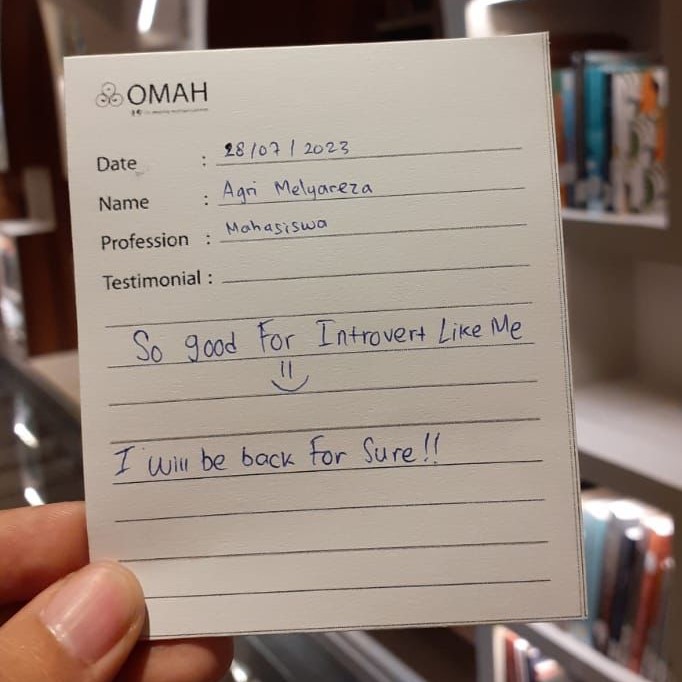 OMAH
Date : 28/07/2023
Name : Agri Melyareza
Profession : Mahasiswa
Testimonial :
So good For Introvert Like Me
I will be back For Sure!!